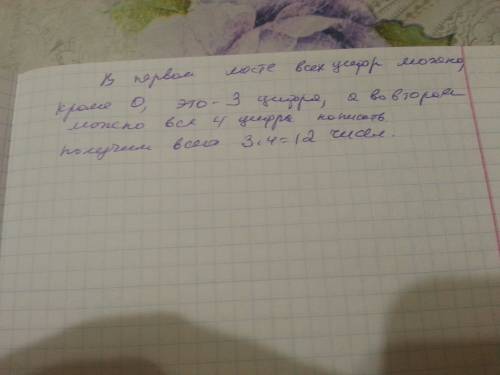 В первом месте всех цифр можно,
кроме 0, это - 3 цифра, а во втором
можно все 4 цифра написать
получим всего 3·4=12 чисел.